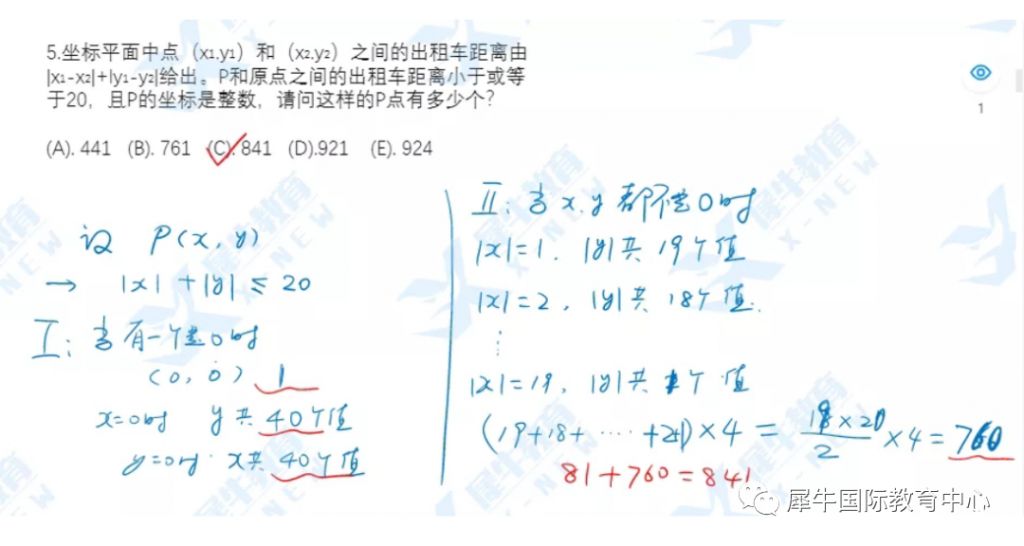 5.坐标平面中点（x₁,y₁）和（x₂,y₂）之间的出租车距离由
|x₁-x₂|+|y₁-y₂|给出。P和原点之间的出租车距离小于或等
于20，且P的坐标是整数，请问这样的P点有多少个？
1
(A). 441 (B). 761 (C). 841 (D).921 (E). 924
设 P(x, y)
→ |x| + |y| ≤ 20
I: 当有一个是0时
(0, 0) 1
x=0时 y共40个值
y=0时. x共40个值
II: 当x.y都不是0时
|x|=1. |y|共19个值
|x|=2, |y|共18个值.
⋮
|x|=19, |y|共1个值
(19+18+ ⋯ +2+1)×4 = 19×20/2 ×4=760
81+760=841
犀牛国际教育中心
犀牛教育
X-NEW